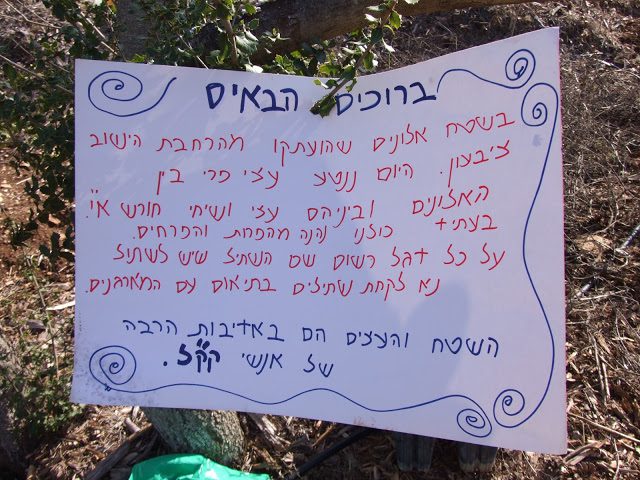 ברוכים הבאים
בשטח אלונים שהועתקו מהרחבת הישוב
גיבעון. היום ננטע עצי פרי בין
האלונים וביניהם עצי ושיחי חורש א"י.
בעתיד כולנו נהנה מהפרות והפרחים.
על כל דגל רשום שם השתיל שיש לשתול
נא לקחת שתילים בתיאום עם המארגנים.
השטח והעצים הם באדיבות הרבה
של אנשי קק"ל.